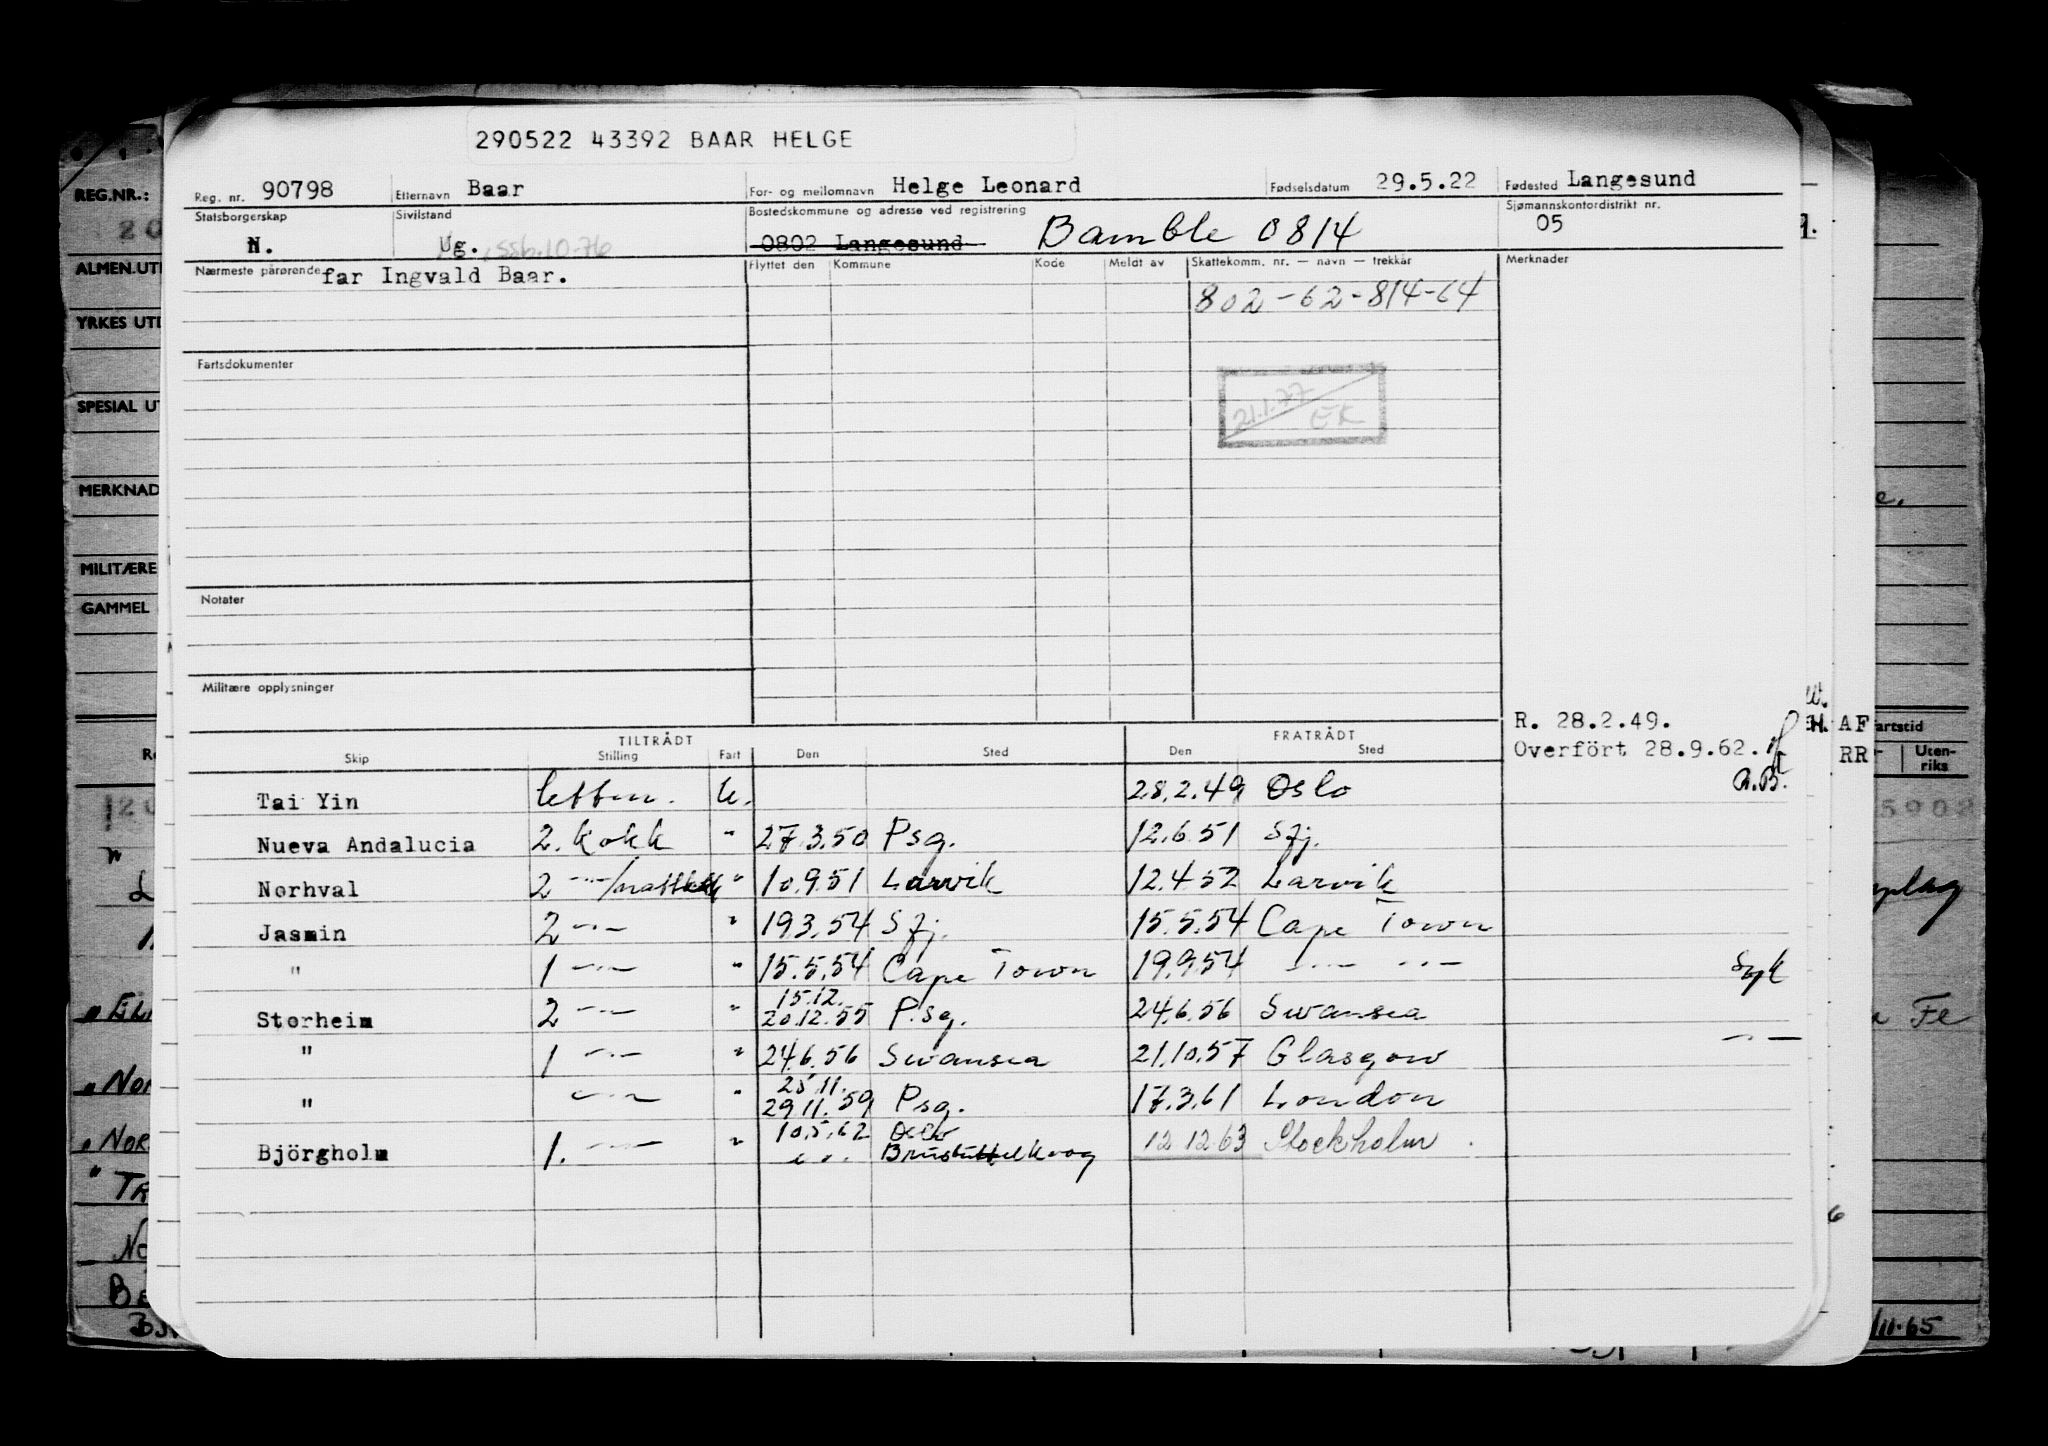 290522 43392 BAAR HELGE
Reg. nr. 90798 Etternavn Baar For- og mellomnavn Helge Leonard Fødselsdatum 29.5.22 Fødested Langesund
Statsborgerskap Sivilstand Bostedskommune og adresse ved registrering Sjømannskontordistrikt nr.
N. Ug. ssb.10.76 0802 Langesund Bamble 0814 05
Nærmeste pårørende far Ingvald Baar. Flyttet den Kommune Kode Meldt av Skattekomm. nr. — navn — trekkår Merknader
802-62-814-64
Fartsdokumenter
21.1.77
EK
Notater
Militære opplysninger
R. 28.2.49.
Overfört 28.9.62.
a.B.
TILTRÅDT FRATRÅDT
Skip Stilling Fart Den Sted Den Sted
Tai Yin U. 28.2.49 Oslo
Nueva Andalucia 2. kokk " 27.3.50 Psg. 12.6.51 Sfj.
Norhval 2 -"- " 10.9.51 Larvik 12.4.52 Larvik
Jasmin 2 -"- " 19.3.54 Sfj. 15.5.54 Cape Town
" 1 -"- " 15.5.54 Cape Town 19.9.54 -"- -"- Syk
Storheim 2 -"- " 15.12. 20.12.55 P.sg. 24.6.56 Swansea
" 1 -"- " 24.6.56 Swansea 21.10.57 Glasgow -"-
" -"- " 25.11. 29.11.59 Psg. 17.3.61 London
Björgholm 1. -"- " 10.5.62 Oslo 12.12.63 Stockholm
REG.NR.:
ALMEN.UT
YRKES UT
SPESIAL U
MERKNAD
MILITÆRE
GAMMEL
AF
RR
artstid
Uten-
riks
Fe
/11-65